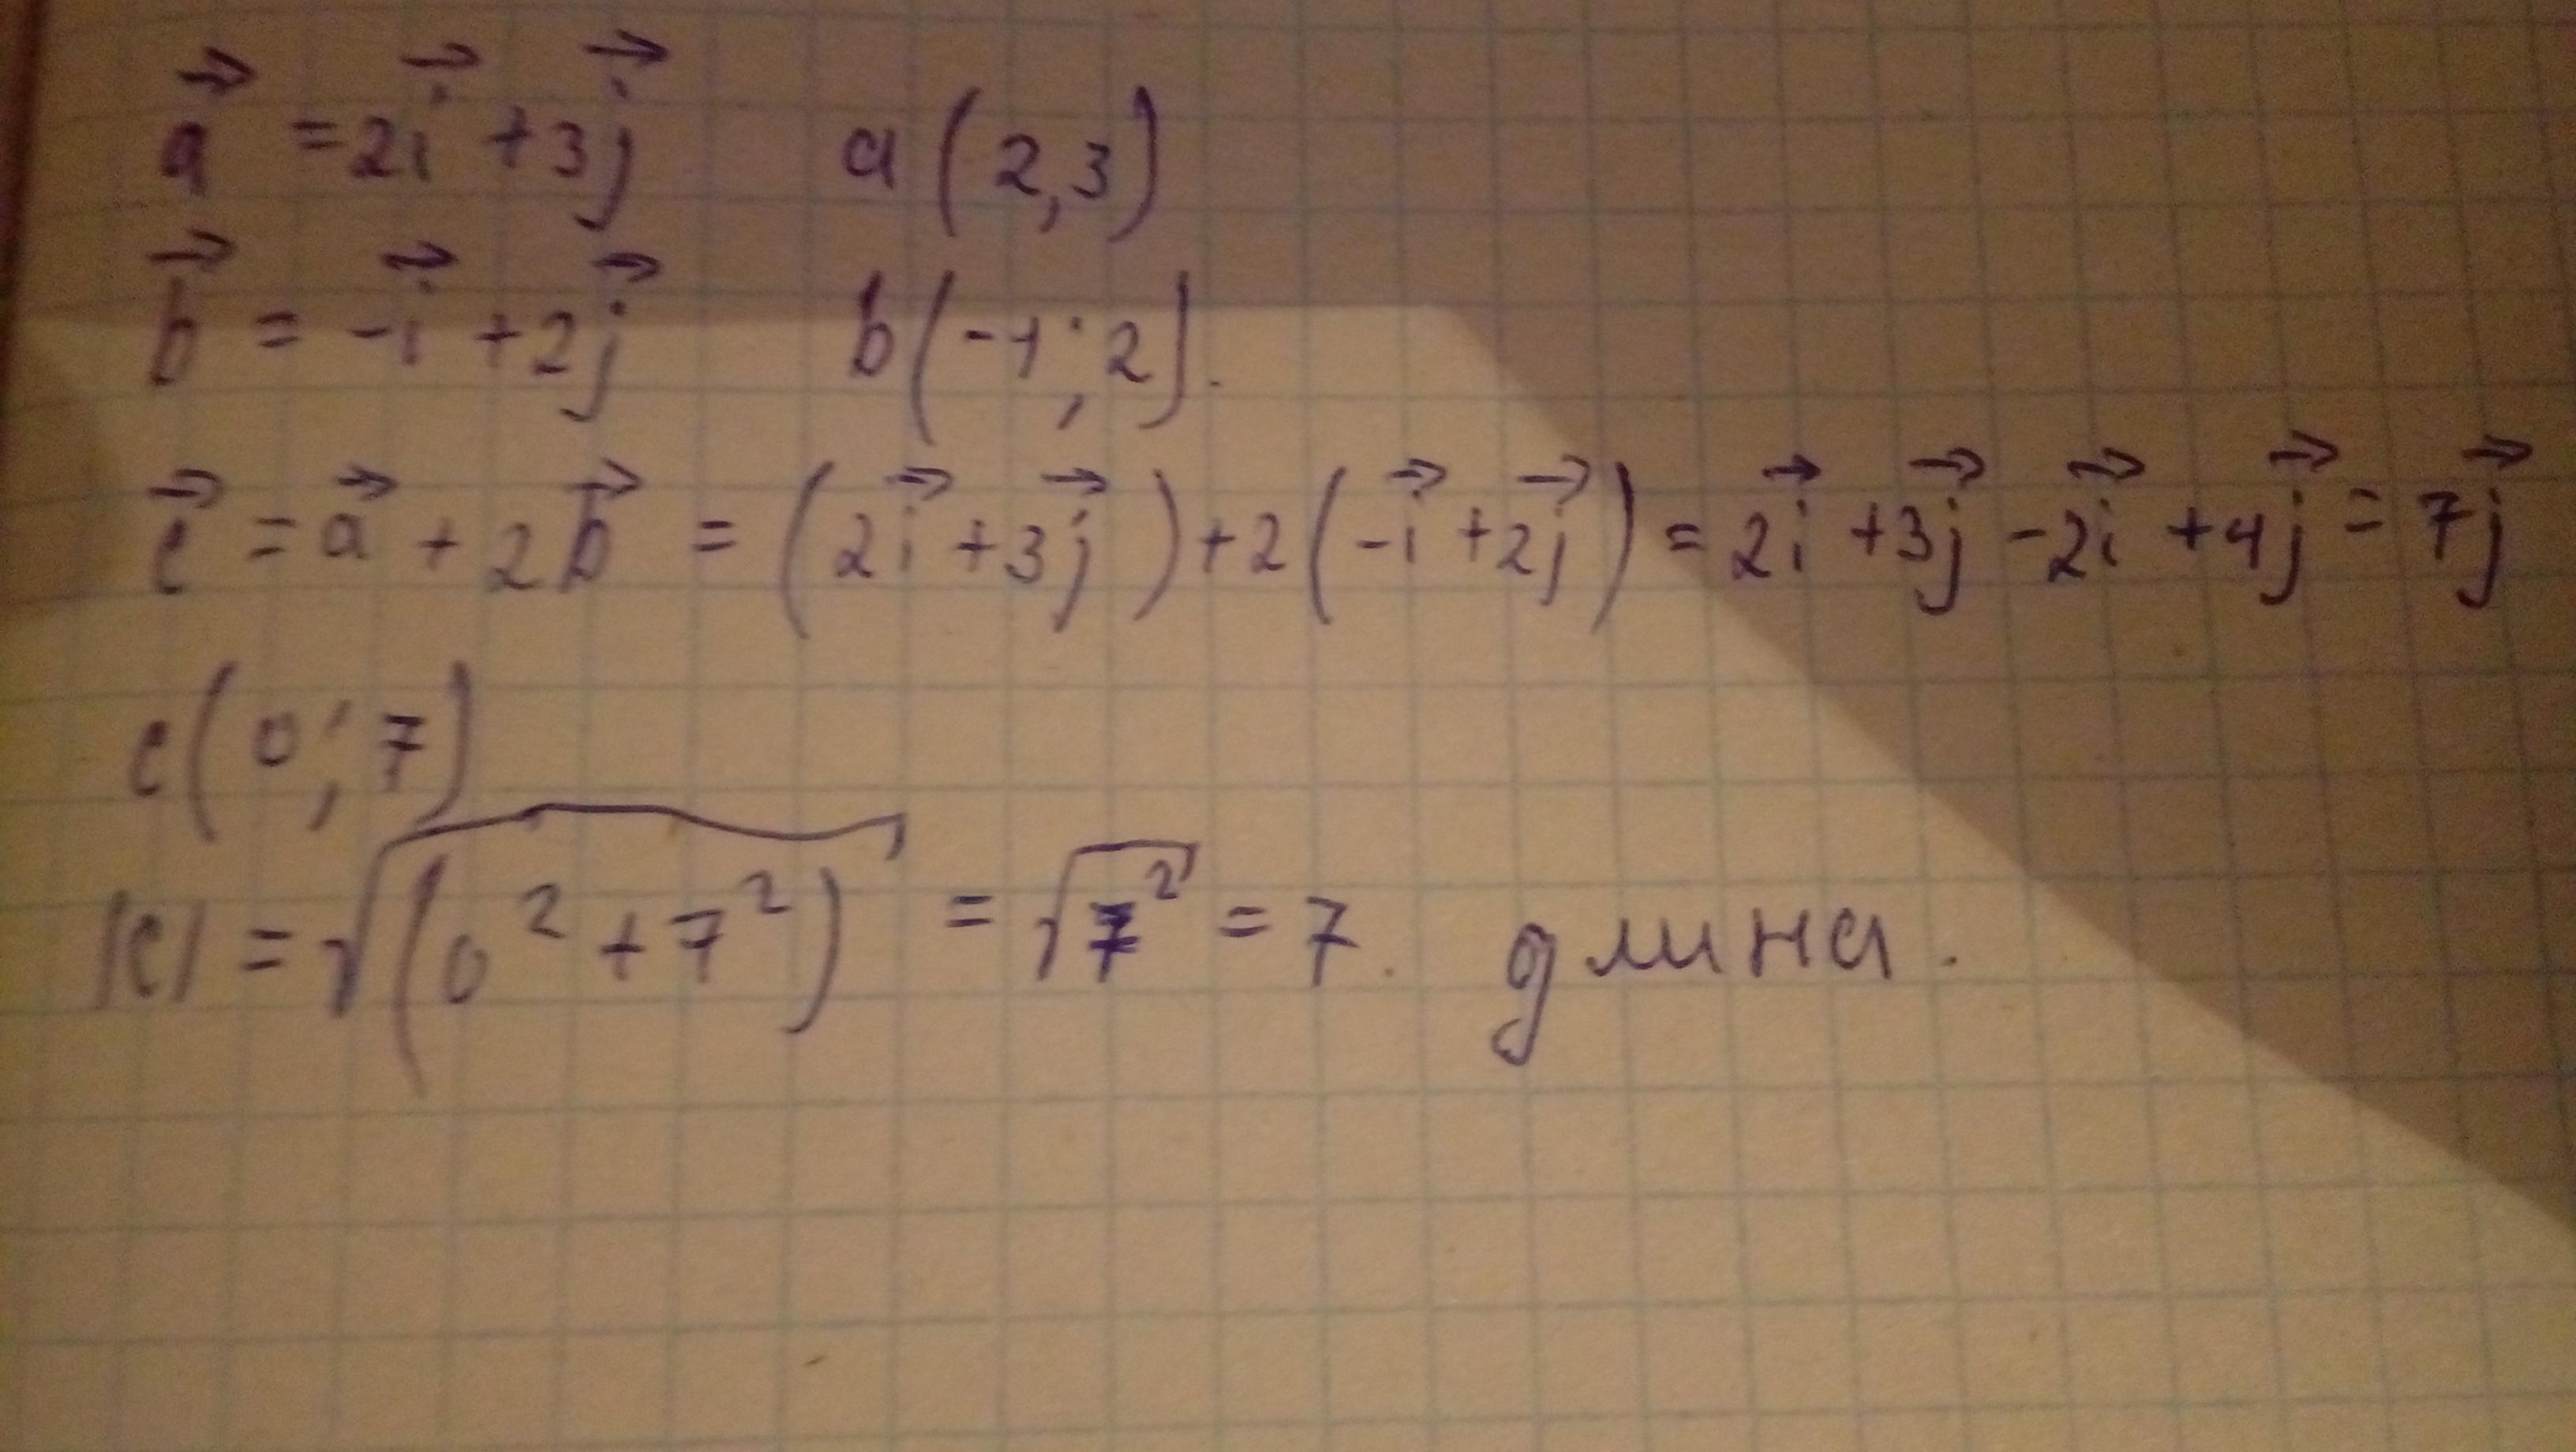 a⃗ = 2i⃗ + 3j⃗ a(2,3)
b⃗ = -i⃗ + 2j⃗ b(-1; 2).
c⃗ = a⃗ + 2b⃗ = (2i⃗ + 3j⃗) + 2(-i⃗ + 2j⃗) = 2i⃗ + 3j⃗ - 2i⃗ + 4j⃗ = 7j⃗
c(0; 7)
|c| = √(0² + 7²) = √7² = 7. длина.